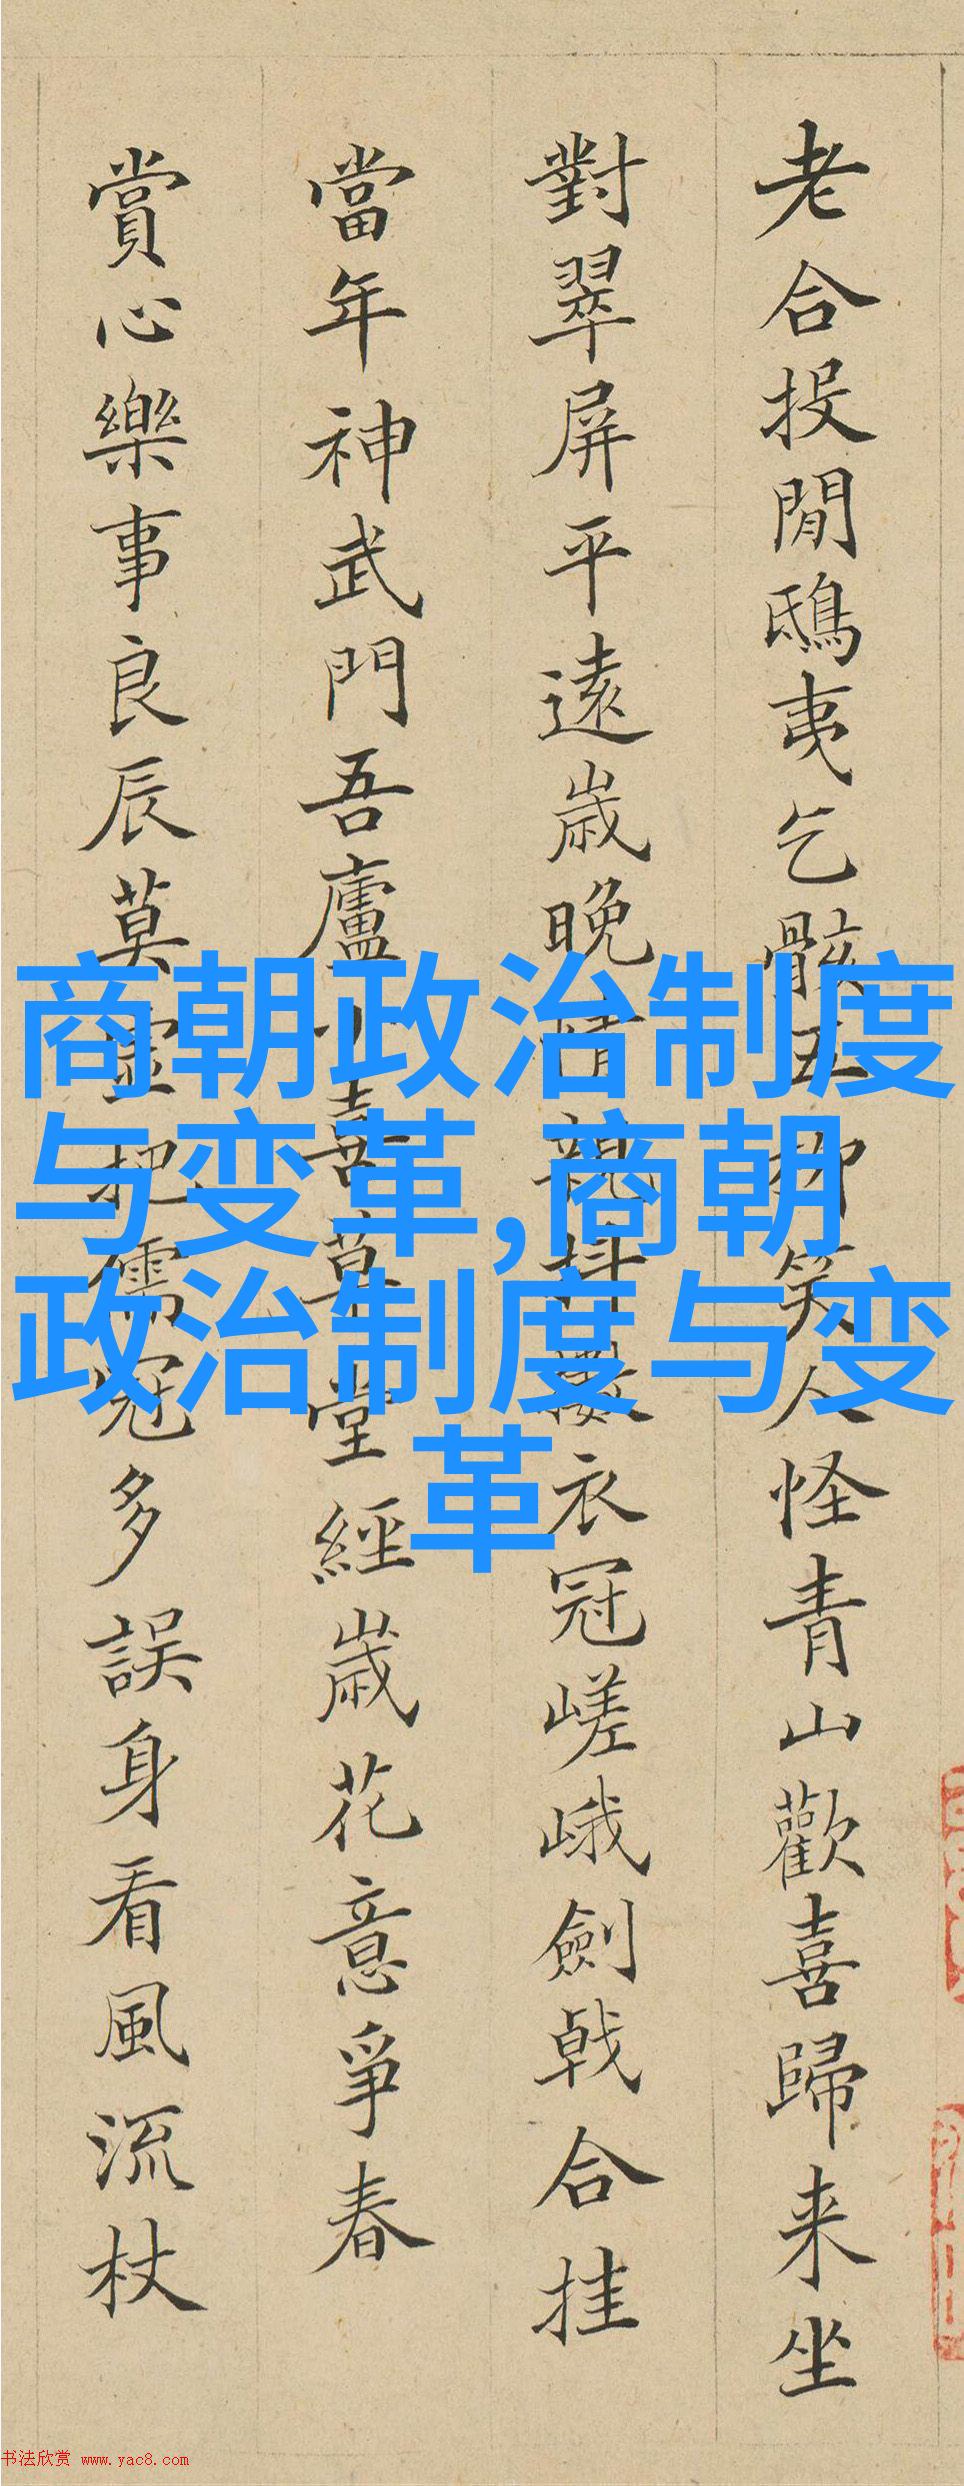 老合投閒鴟夷乞骸五柳笑人怪青山歡喜歸来坐
對翠屏平遠歲晚情親抖擻衣冠嵯峨劍戟合挂
當年神武門吾廬小喜草堂經歲花意爭春
賞心樂事良辰莫虛把儒冠多誤身看風流杖
商朝政治制度
与变革,商朝
政治制度与变
革
书法欣赏 www.yac8.com